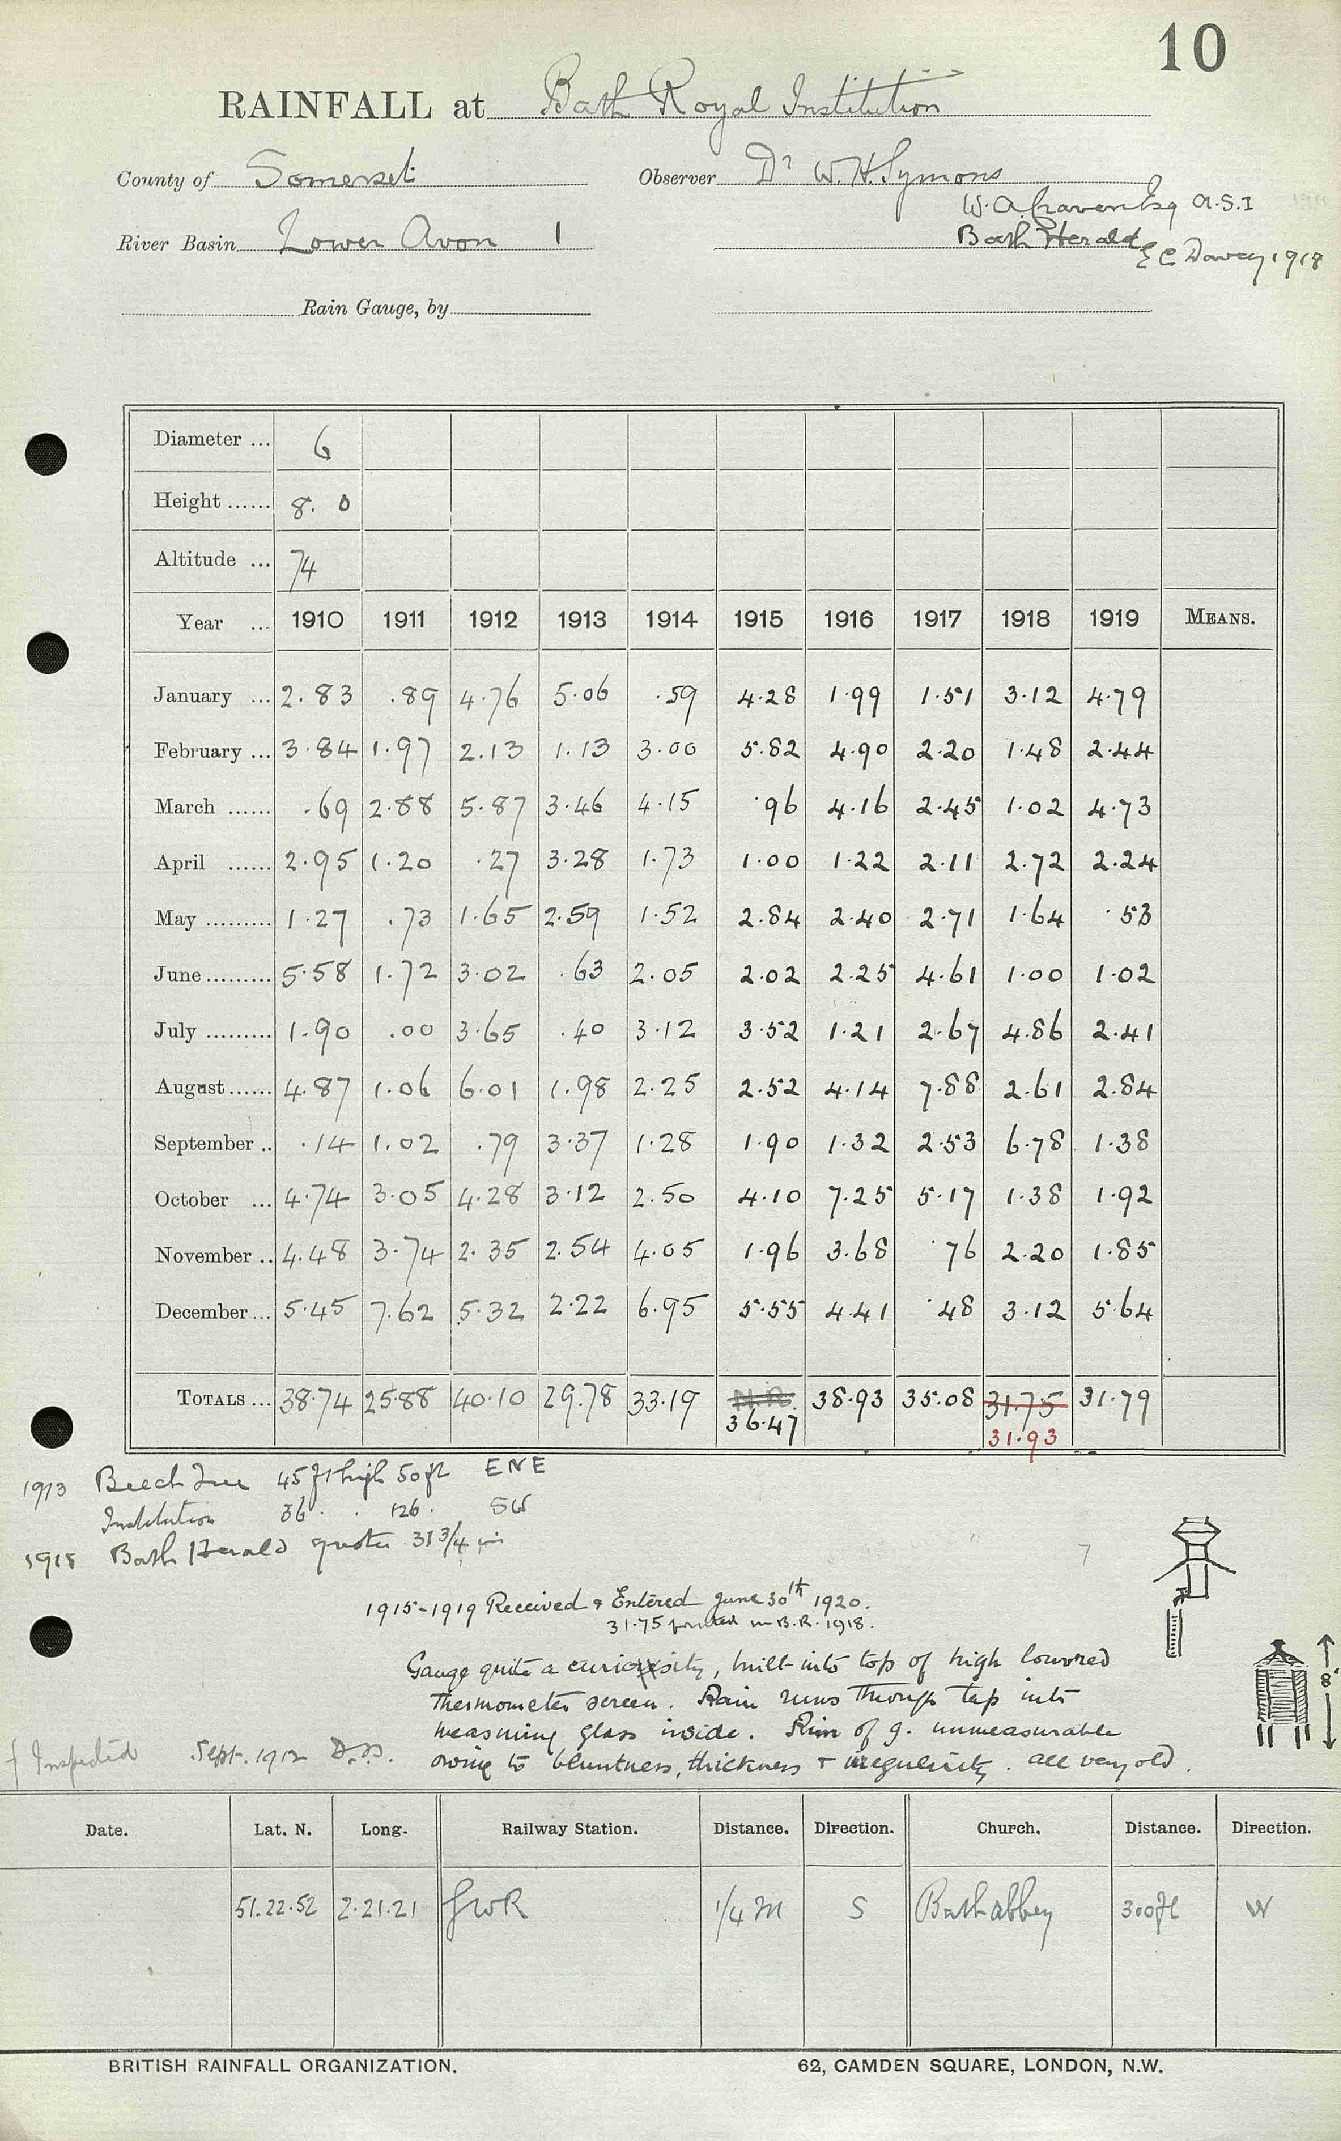 10
RAINFALL at Bath Royal Institution
County of Somerset Observer Dr W. H. Symons
W. A. Craven Esq A.S.I
River Basin Lower Avon 1 Bath Herald
E C Davey 1918
Rain Gauge, by
Diameter ... 6
Height ...... 8. 0
Altitude ... 74
Year ... 1910 1911 1912 1913 1914 1915 1916 1917 1918 1919 MEANS.
January ... 2.83 .89 4.76 5.06 .59 4.28 1.99 1.51 3.12 4.79
February ... 3.84 1.97 2.13 1.13 3.00 5.82 4.90 2.20 1.48 2.44
March ...... .69 2.88 5.87 3.46 4.15 .96 4.16 2.45 1.02 4.73
April ...... 2.95 1.20 .27 3.28 1.73 1.00 1.22 2.11 2.72 2.24
May ......... 1.27 .73 1.65 2.59 1.52 2.84 2.40 2.71 1.64 .53
June......... 5.58 1.72 3.02 .63 2.05 2.02 2.25 4.61 1.00 1.02
July ......... 1.90 .00 3.65 .40 3.12 3.52 1.21 2.67 4.86 2.41
August...... 4.87 1.06 6.01 1.98 2.25 2.52 4.14 7.88 2.61 2.84
September .. .14 1.02 .79 3.37 1.28 1.90 1.32 2.53 6.78 1.38
October ... 4.74 3.05 4.28 3.12 2.50 4.10 7.25 5.17 1.38 1.92
November .. 4.48 3.74 2.35 2.54 4.05 1.96 3.68 .76 2.20 1.85
December... 5.45 7.62 5.32 2.22 6.95 5.55 4.41 .48 3.12 5.64
TOTALS ... 38.74 25.88 40.10 29.78 33.19 N.R. 38.93 35.08 31.75 31.79
36.47 31.93
1913 Beech Tree 45 ft high 50 ft ENE
Institution 36 . . 126 . SW
1918 Bath Herald quotes 31 3/4 in
7
1915-1919 Received & Entered June 30th 1920.
31.75 printed in B.R. 1918.
Gauge quite a curiosity, built into top of high louvred
thermometer screen. Rain runs through tap into
measuring glass inside. Rim of g. unmeasurable
owing to bluntness, thickness + irregularity. all very old.
8'
Inspected Sept. 1912
Date. Lat. N. Long. Railway Station. Distance. Direction. Church. Distance. Direction.
51.22.52 2.21.21 GWR 1/4 m S Bath abbey 300ft W
BRITISH RAINFALL ORGANIZATION. 62, CAMDEN SQUARE, LONDON, N.W.